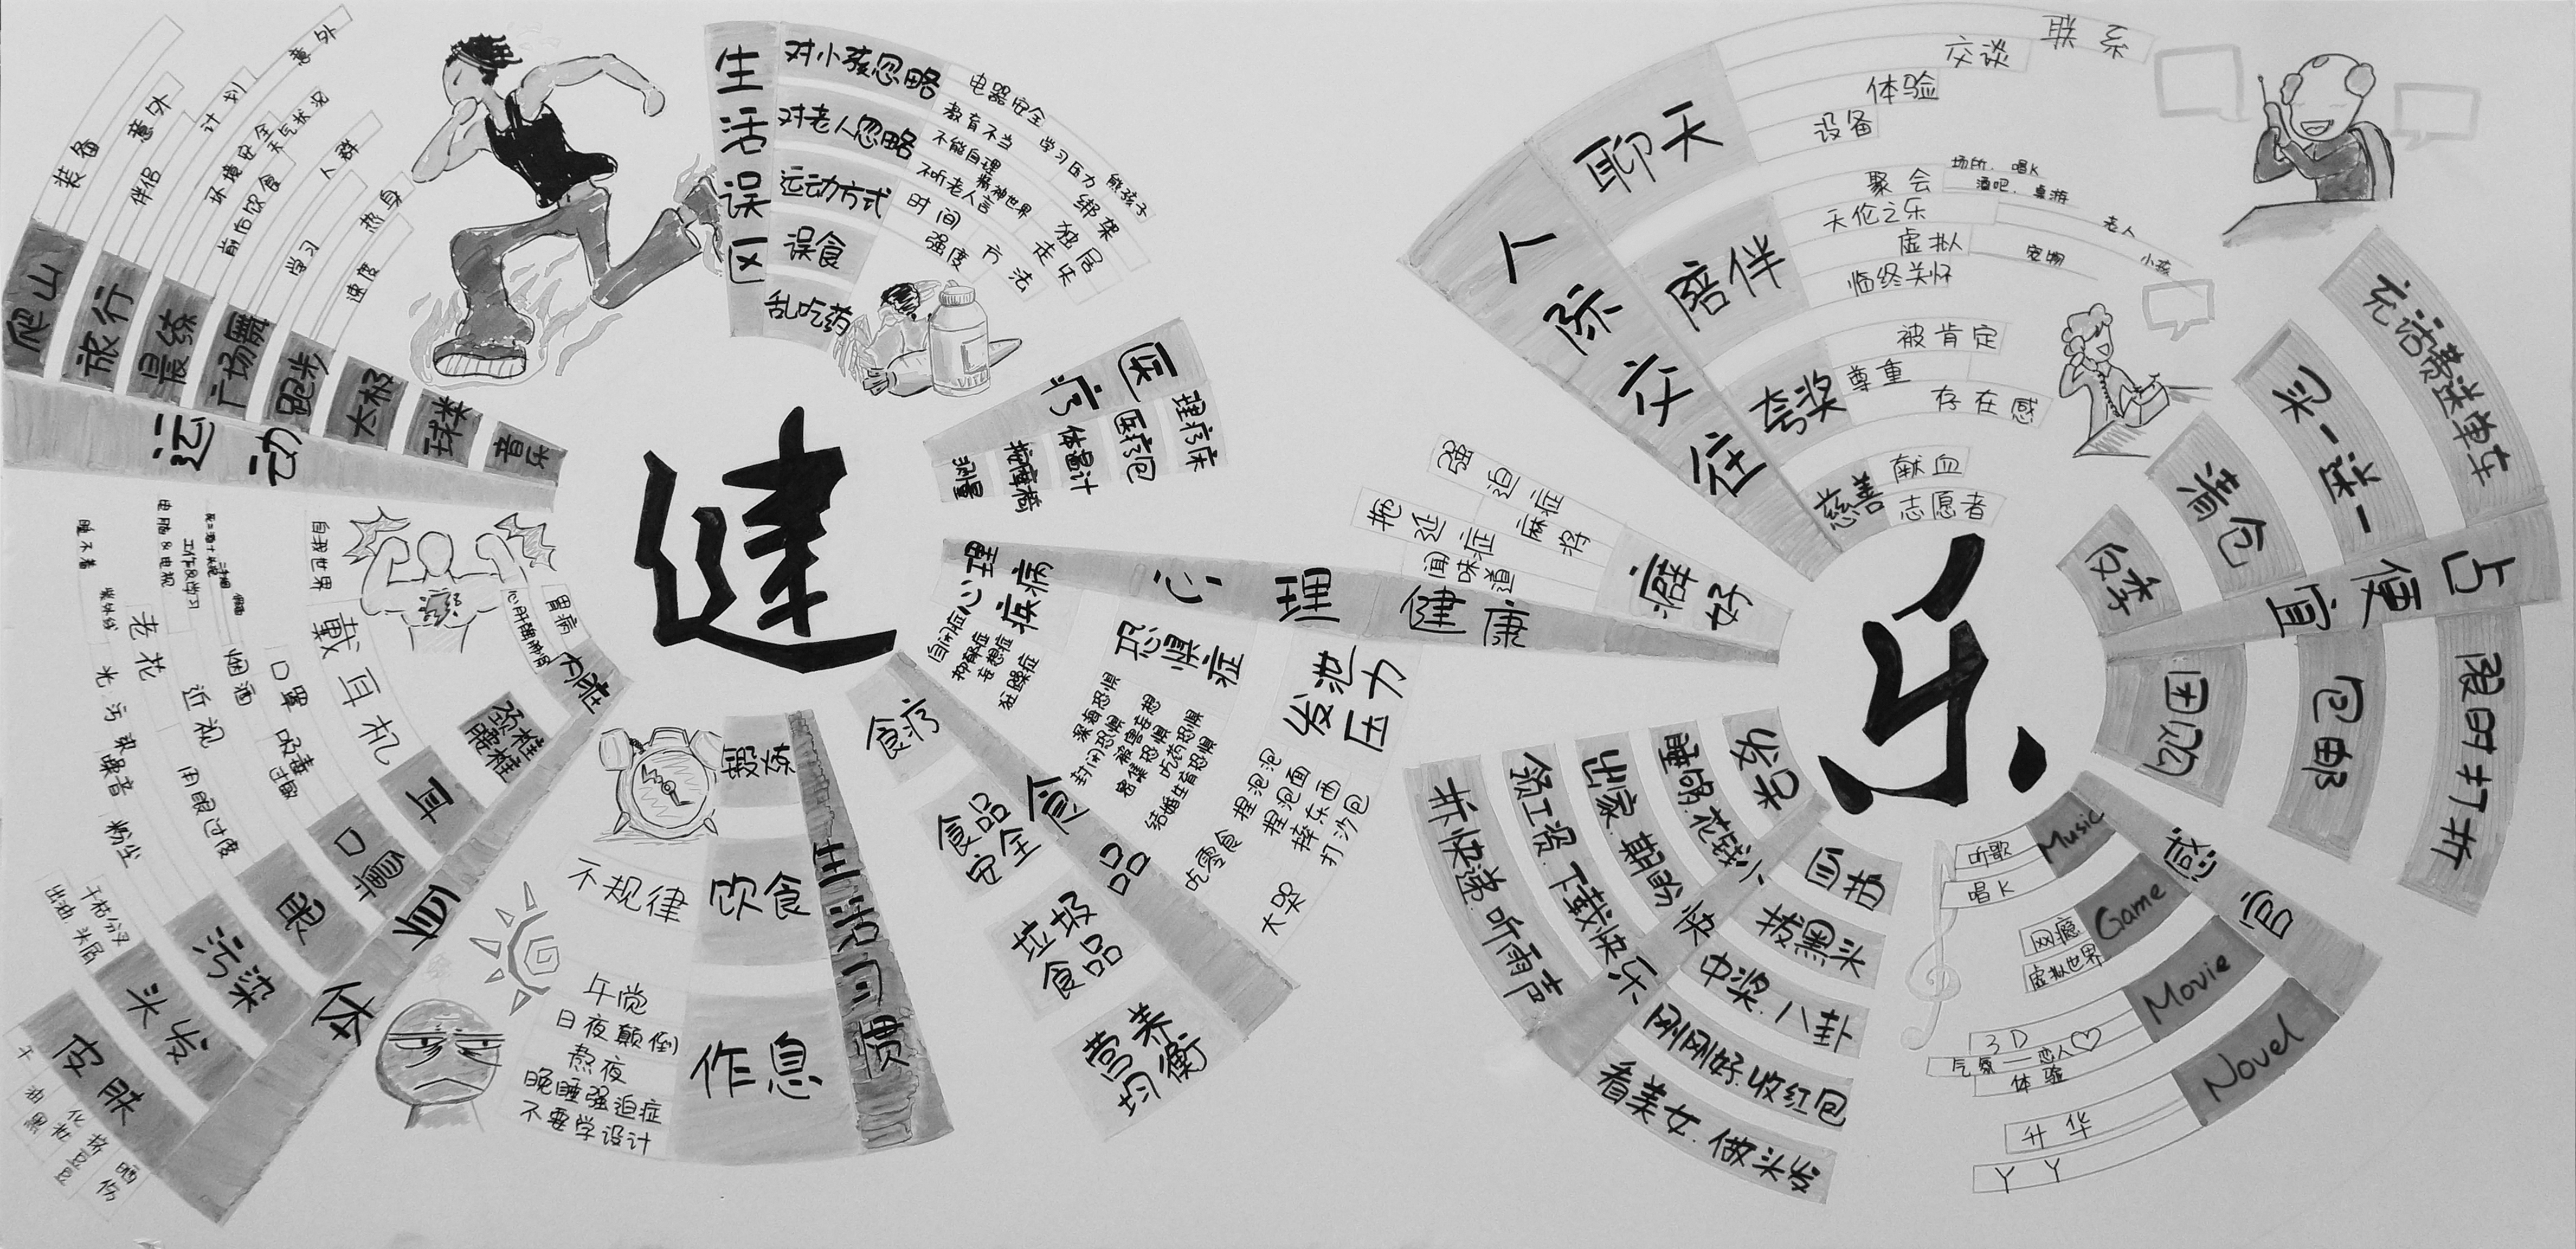 健
生活误区
对小孩忽略
电器安全
教育不当
学习压力
熊孩子
绑架
对老人忽略
不能自理
精神世界
独居
不听老人言
走失
运动方式
时间
强度
方法
误食
乱吃药
医疗
理疗床
医疗包
体温计
按摩椅
测量
运动
爬山
装备
意外
旅行
伴侣
计划
意外
晨练
环境安全
天气状况
前后饮食
广场舞
人群
学习
跑步
热身
速度
太极
球类
音乐
体质
内脏
胃病
心肝脾肺肾
颈椎
腰椎
耳
戴耳机
自我世界
口鼻
口罩
烟酒
吸毒
过敏
眼
老花
近视
用眼过度
电脑&电视
工作&学习
睡不着
污染
紫外线
光污染
噪音
粉尘
头发
干枯分叉
出油.头屑
皮肤
干
油
黑
化妆
挤豆豆
晒伤
生活习惯
锻炼
饮食
不规律
作息
午觉
日夜颠倒
熬夜
晚睡强迫症
不要学设计
食品
食疗
食品安全
垃圾食品
营养均衡
心理健康
心理疾病
自闭症
抑郁症
妄想症
狂躁症
恐惧症
深海恐惧
封闭恐惧
被害妄想
密集恐惧
吃药恐惧
结婚生育恐惧
发泄压力
捏泡泡
捏泡面
摔东西
打沙包
吃零食
大哭
癖好
强迫症
麻将
拖延症
闻味道
乐
人际交往
聊天
联系
交谈
体验
设备
陪伴
聚会
场所.唱K
酒吧.桌游
天伦之乐
老人
小孩
虚拟
宠物
临终关怀
夸奖
被肯定
尊重
存在感
慈善
献血
志愿者
占便宜
反季
清仓
买一送一
充话费送单车
团购
包邮
限时打折
感官
Music
听歌
唱K
Game
网瘾
虚拟世界
Movie
3D
气氛—恋人♡
体验
Novel
升华
YY
小快乐
发呆
睡够.花钱
出家.期盼
领工资.下载
拆快递.听雨声
自拍
拔黑头
中奖.八卦
刚刚好.收红包
看美女.做头发